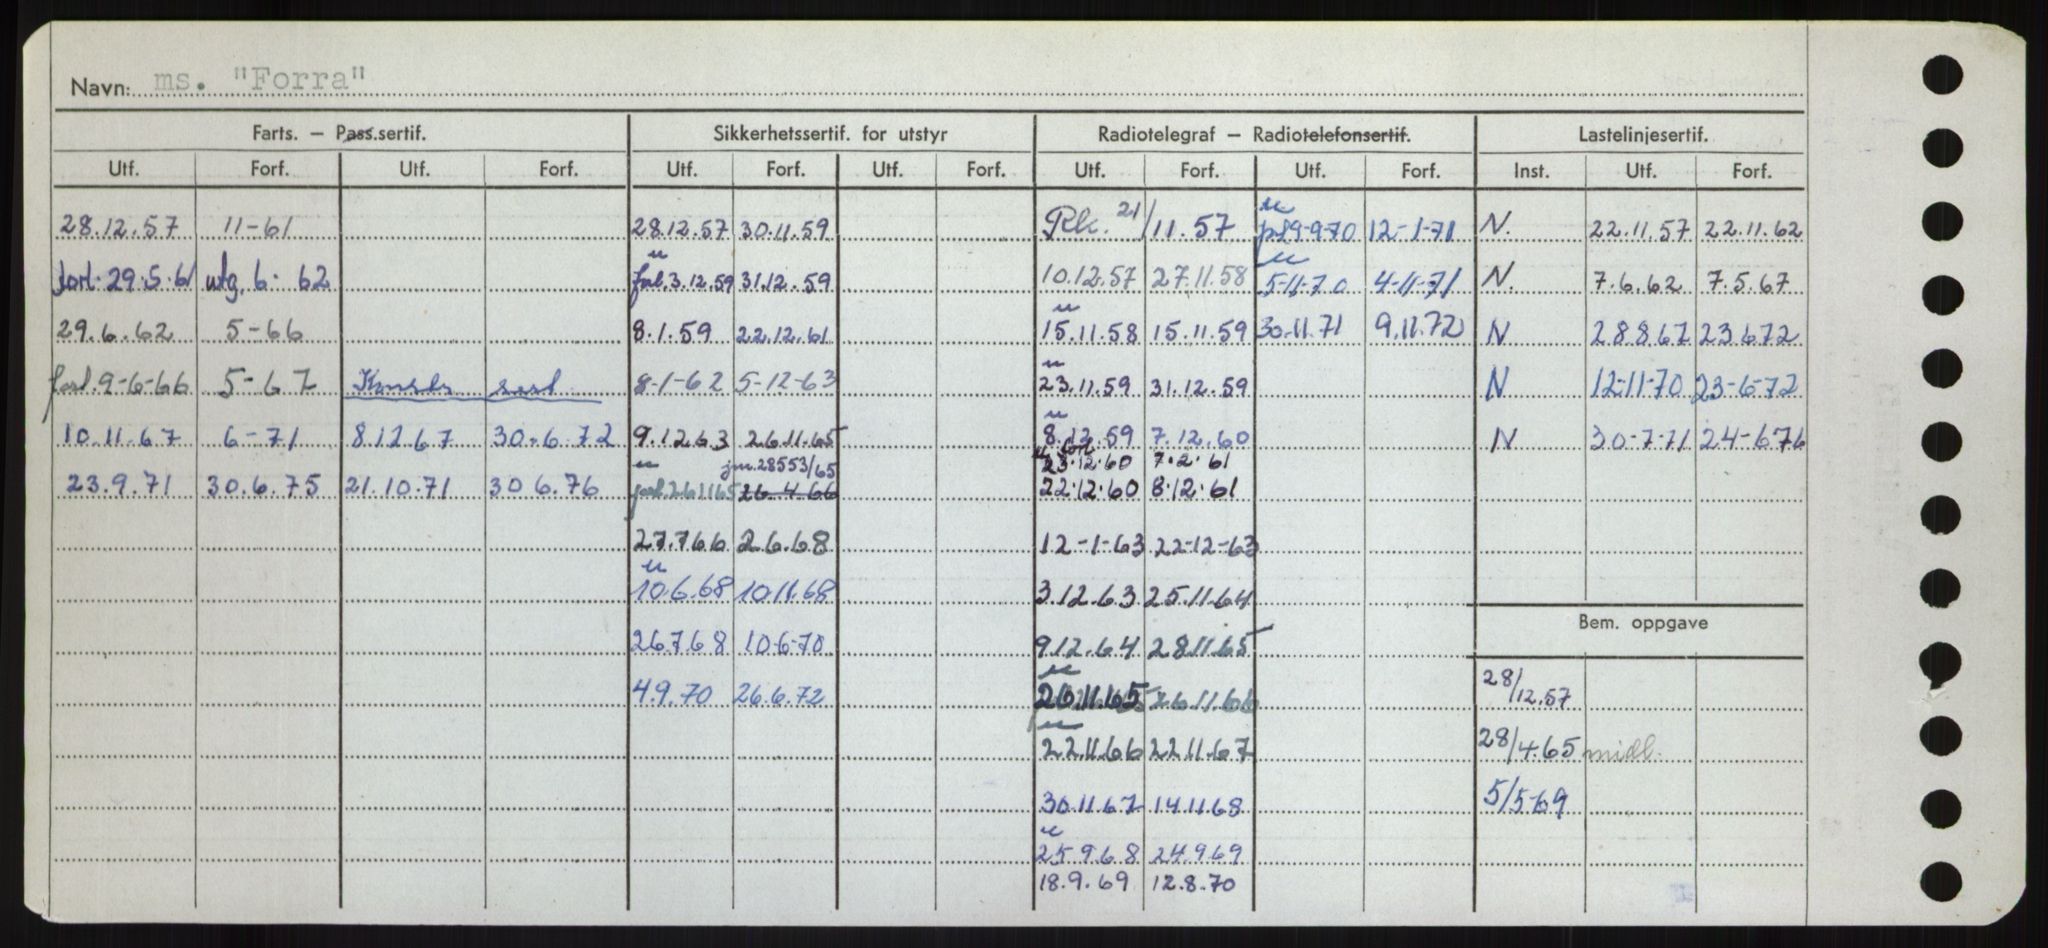 Navn: ms. "Forra"
Farts. – Pass.sertif. Sikkerhetssertif. for utstyr Radiotelegraf – Radiotelefonsertif. Lastelinjesertif.
Utf. Forf. Utf. Forf. Utf. Forf. Utf. Forf. Utf. Forf. Utf. Forf. Inst. Utf. Forf.
28.12.57 11-61 28.12.57 30.11.59 Rk. 21/11.57 9-9-70 12-1-71 N. 22.11.57 22.11.62
forl. 29.5.61 utg. 6. 62 forl. 3.12.59 31.12.59 10.12.57 27.11.58 5-11-70 4-11-71 N. 7.6.62 7.5.67
29.6.62 5-66 8.1.59 22.12.61 15.11.58 15.11.59 30.11.71 9.11.72 N 28.8.67 23.6.72
forl. 9-6-66 5-67 Konstr. sert. 8-1-62 5-12-63 23.11.59 31.12.59 N 12-11-70 23-6-72
10.11.67 6-71 8.12.67 30.6.72 9.12.63 26.11.65 8.12.59 7.12.60 N 30-7-71 24-6-76
jnr. 28553/65 forl. 23.12.60 7.2.61
23.9.71 30.6.75 21.10.71 30 6.76 forl. 26.11.65 26.4.66 22.12.60 8.12.61
27.7.66 2.6.68 12-1-63 22-12-63
10.6.68 10.11.68 3.12.63 25.11.64
Bem. oppgave
26.7.68 10-6-70 9.12.64 28.11.65
4.9.70 26.6.72 26.11.65 26.11.66 28/12.57
22.11.66 22.11.67 28/4.65 midl.
30.11.67 14.11.68 5/5-69
25.9.68 24.9.69
18.9.69 12.8.70